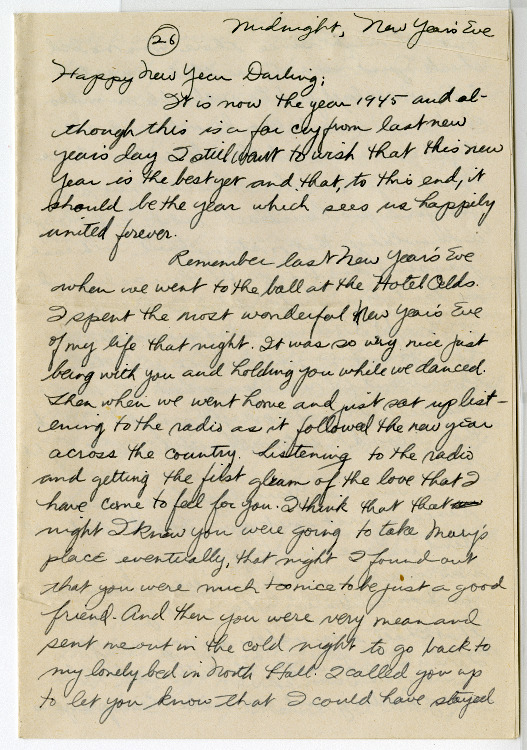 26
Midnight, New Year's Eve
Happy New Year Darling;
It is now the year 1945 and al-
though this is a far cry from last new
year's day I still want to wish that this new
year is the best yet and that, to this end, it
should be the year which sees us happily
united forever.
Remember last New Year's Eve
when we went to the ball at the Hotel Olds.
I spent the most wonderful New Year's Eve
of my life that night. It was so very nice just
being with you and holding you while we danced.
Then when we went home and just sat up list-
ening to the radio as it followed the new year
across the country. Listening to the radio
and getting the first gleam of the love that I
have come to feel for you. I think that that
night I knew you were going to take Mary's
place eventually, that night I found out
that you were much too nice to be just a good
friend. And then you were very mean and
sent me out in the cold night to go back to
my lonely bed in North Hall. I called you up
to let you know that I could have stayed